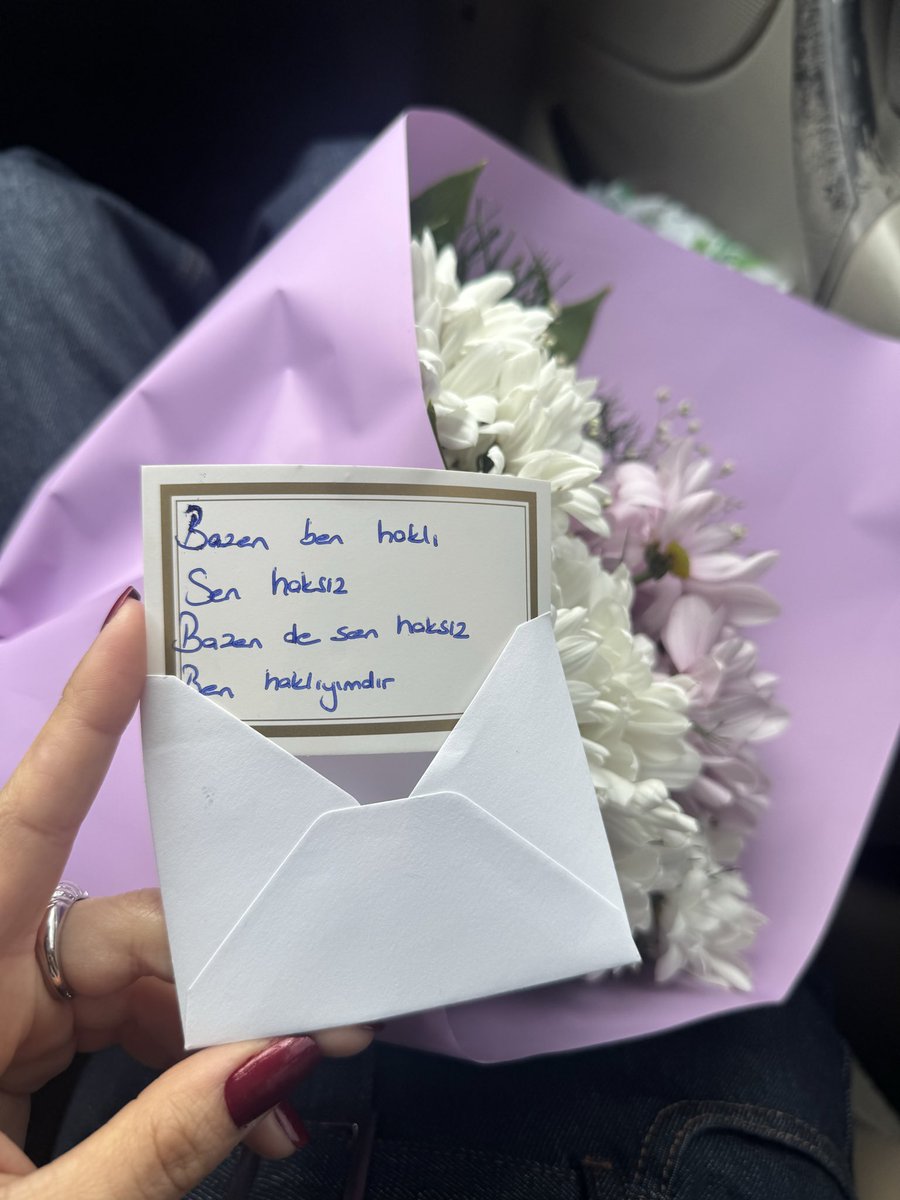 Bazen ben haklı
Sen haksız
Bazen de sen haksız
Ben haklıyımdır